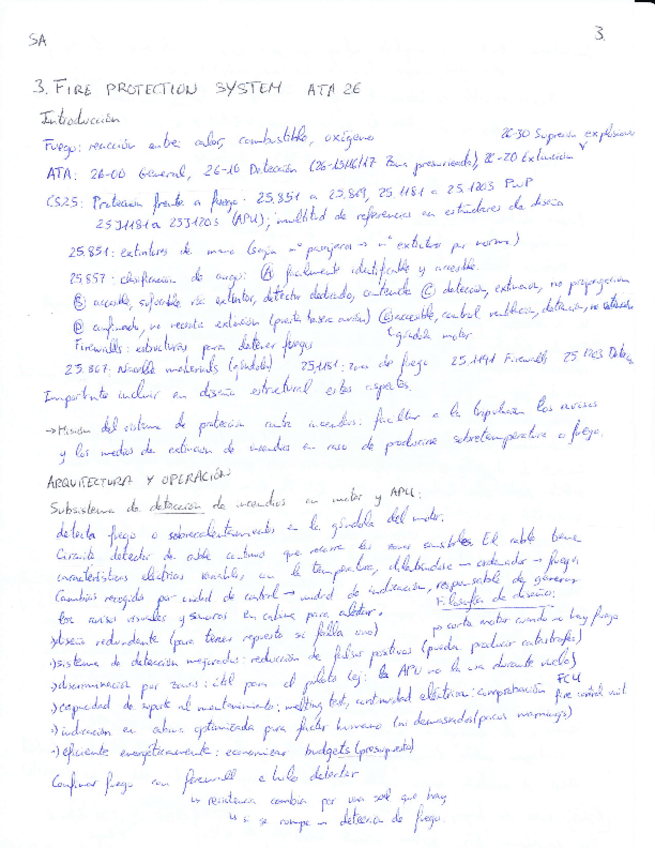 SA
3.
3. FIRE PROTECTION SYSTEM ATA 26
Introducción
Fuego: reacción entre calor, combustible, oxígeno
26-30 Supresión explosiones
ATA: 26-00 General, 26-10 Detección (26-15/16/17 Zona presurizada), 26-20 Extinción
CS25: Protección frente a fuego. 25.851 a 25.869, 25.1181 a 25.1203 PWP
25J1181 a 25J1203 (APU); multitud de referencias en estándares de diseño
25.851: extintores de mano (según nº pasajeros → nº extintor por norma)
25.857: clasificación de cargo: Ⓐ fácilmente identificable y accesible.
Ⓑ accesible, extintor, detector dedicado, Ⓒ detección, extinción, no propagación
Ⓓ confinado, no necesita extinción Ⓔ accesible, control ventilación, detección, no extinción
Firewalls: estructuras para detener fuegos
góndola motor
25.867: materials (góndola) 25.1181: zonas de fuego 25.1191 Firewalls 25.1203 Detec.
Importante incluir en diseño estructural estos aspectos.
→ Misión del sistema de protección contra incendios: facilitar a la tripulación los avisos
y los medios de extinción de incendios en caso de producirse sobretemperatura o fuego.
ARQUITECTURA Y OPERACIÓN
Subsistema de detección de incendios en motor y APU:
detecta fuego o sobrecalentamientos en la góndola del motor.
Circuito detector de cable continuo que recorre las zonas sensibles. El cable tiene
características eléctricas variables con la temperatura, → ordenador → fuego
Cambios recogidos por unidad de control → unidad de indicación, responsable de generar
los avisos visuales y sonoros en cabina para alertar.
Filosofía de diseño:
→ corta motor cuando no hay fuego
·) diseño redundante (para tener repuesto si falla uno)
·) sistema de detección mejorados: reducción de falsos positivos (pueden producir catástrofes)
·) discriminación por zonas: útil para el piloto (ej: la APU no la usa durante vuelo)
FCU
·) capacidad de soporte al mantenimiento: test, continuidad eléctrica: comprobación fire control unit
·) indicación en cabina optimizada para factor humano (ni demasiados/pocos warnings)
·) eficiente energéticamente: economizar budgets (presupuesto)
Confirmar fuego con firewall e hilo detector
↳ resistencia cambia por una sal que hay
↳ si se rompe → detección de fuego.